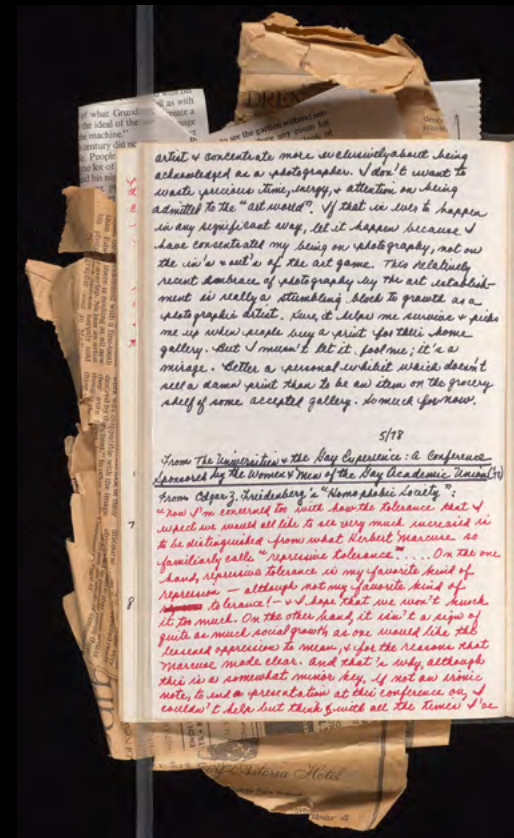 DREX
of what
the ideal of the
e machine."
century did no
People
the lot of
to see the garden without
artist & concentrate more exclusively about being
acknowledged as a photographer. I don't want to
waste precious time, energy, & attention on being
admitted to the "art world". If that is ever to happen
in any significant way, let it happen because I
have concentrated my being on photography, not on
the in's & out's of the art game. This relatively
recent embrace of photography by the art establish-
ment is really a stumbling block to growth as a
photographic artist. Sure, it helps me survive & picks
me up when people buy a print for their home
gallery. But I musn't let it fool me; it's a
mirage. Better a personal exhibit which doesn't
sell a damn print than to be an item on the grocery
shelf of some accepted gallery. So much for now.
5/78
From The Universities & the Gay Experience: A Conference
Sponsored by the Women & Men of the Gay Academic Union
From Edgar Z. Freidenberg's "Homophobic Society":
"now I'm concerned too with how the tolerance that I
expect we would all like to see very much increased is
to be distinguished from what Herbert Marcuse so
familiarly calls "repressive tolerance"..... On the one
hand, repressive tolerance is my favorite kind of
repression — although not my favorite kind of
tolerance! — & I hope that we won't knock
it too much. On the other hand, it isn't a sign of
quite as much social growth as one would like the
lessened oppression to mean, & for the reasons that
Marcuse made clear. And that's why, although
this is a somewhat minor key, if not an ironic
note, to end a presentation at this conference on, I
couldn't help but think with all the times I've
7
8
Astoria Hotel